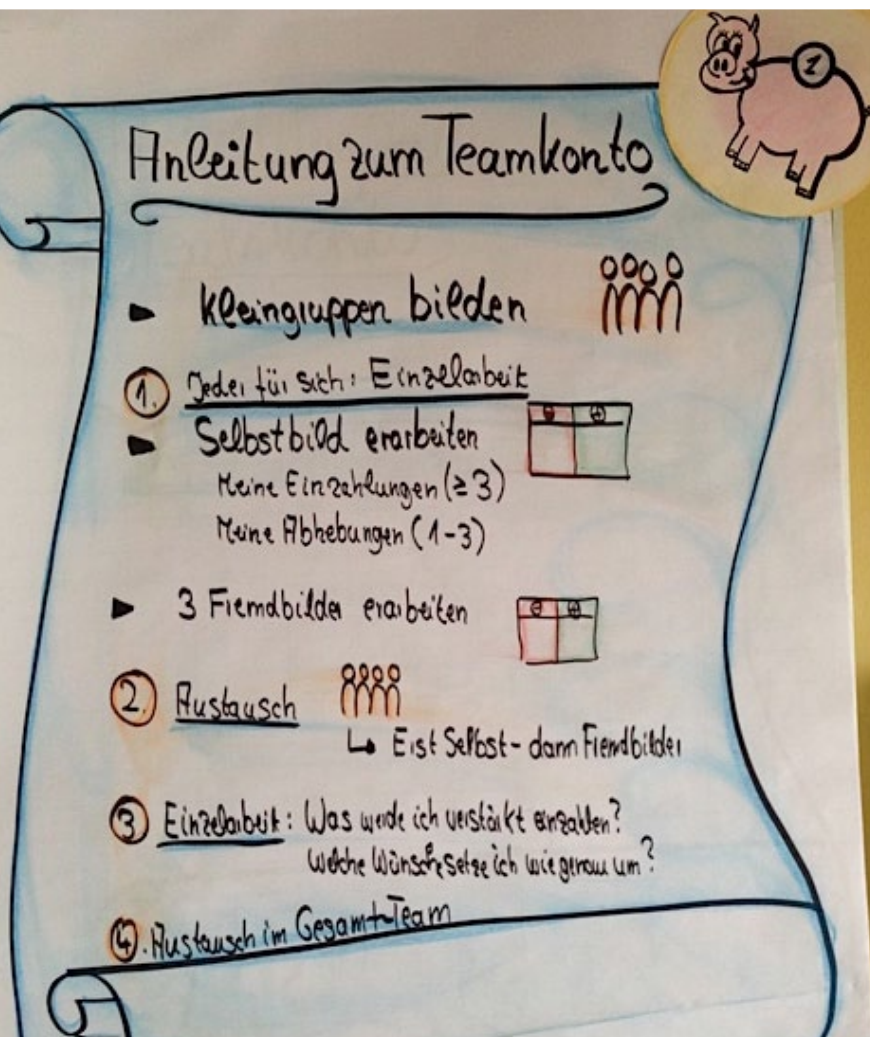 1
Anleitung zum Teamkonto
Kleingruppen bilden
1. Jeder für sich: Einzelarbeit
Selbstbild erarbeiten
- +
Meine Einzahlungen (≥3)
Meine Abhebungen (1-3)
3 Fremdbilder erarbeiten
- +
2. Austausch
↳ Erst Selbst- dann Fremdbilder
3 Einzelarbeit: Was werde ich verstärkt einzahlen?
Welche Wünsche setze ich wie genau um?
4. Austausch im Gesamt-Team